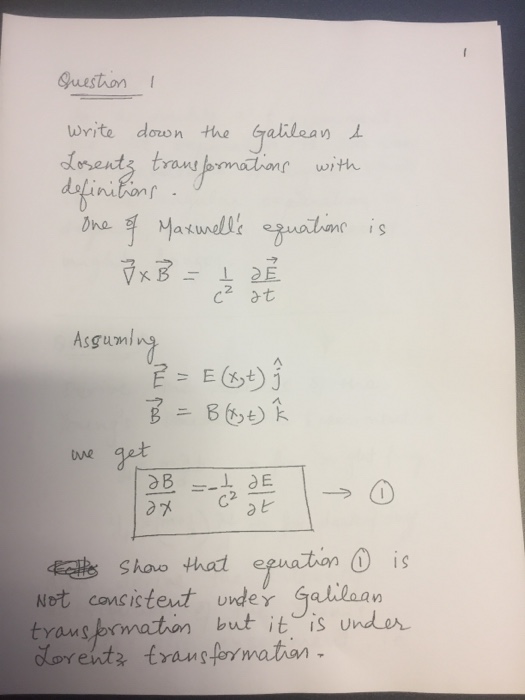 1
Question 1
Write down the Galilean &
Lorentz transformations with
definitions.
One of Maxwell's equations is
∇⃗ × B⃗ = 1/c² ∂E⃗/∂t
Assuming
E⃗ = E(x,t) ĵ
B⃗ = B(x,t) k̂
we get
∂B/∂x = -1/c² ∂E/∂t → ①
Show that equation ① is
Not consistent under Galilean
transformation but it is under
Lorentz transformation.